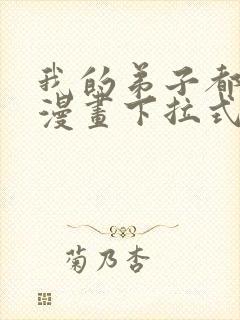 我的弟子都
漫畫下拉式
菊乃杏